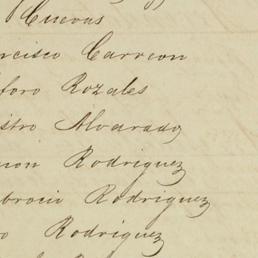 Cuevas
ncisco Carreon
foro Rozales
stro Alvarado
Rodriguez
brocio Rodriguez
o Rodriguez